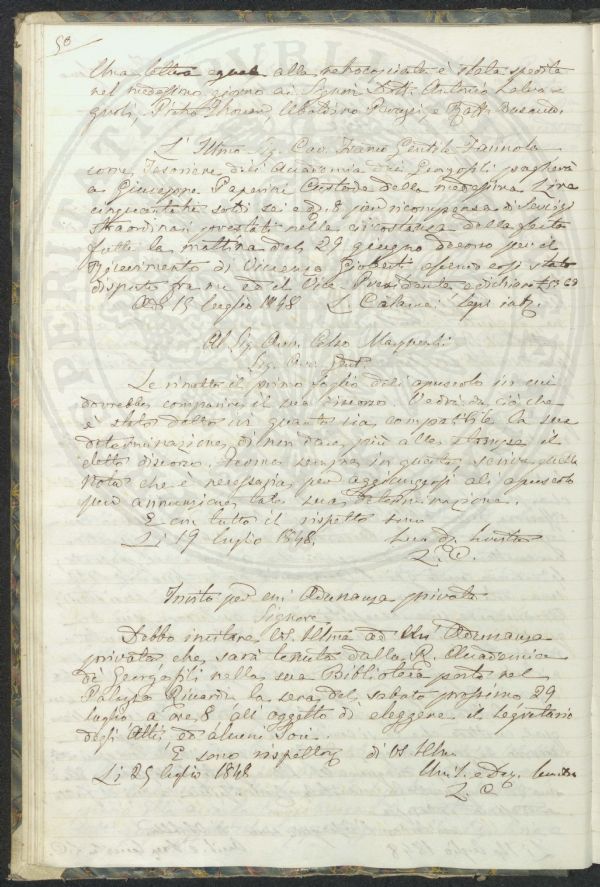 58
Una lettera equale alla retroscritta è stata spedita
nel medesimo giorno ai Signori Dott. Antonio Salva-
gnoli, Pietro Thouar, Ubaldino Peruzzi, e Raff. Busacca.
L'Illmo Sig. Cav. Franco Gentile Farinola
come Tesoriere dell'Accademia dei Georgofili pagherà
a Giuseppe Paperini Custode della medesima Lire
cinquantatre soldi sei e d. 8 per ricompensa di servigj
straordinari prestati nella circostanza della festa
fatta la mattina del 29 giugno decorso per il
ricevimento di Vincenzo Gioberti essendo così stato
disposto fra me ed il Vice Presidente e dichiaro £ 53 68
Adì 15 luglio 1848 L. Calamai Segr. int.
Al Sig. Avv. Celso Marzucchi
Sig. Avv. Prnt.
Le rimetto il primo foglio dell'opuscolo in cui
dovrebbe comparire il suo discorso. Vedrà da ciò che
è stato detto in quanto sia compatibile la sua
determinazione di non dare più alle stampe il
detto discorso. Ferma sempre in questo, scriva quella
nota che è necessaria per aggiungersi all'opuscolo
per annunziare tale sua determinazione.
E con tutto il rispetto sono
Li 19 luglio 1848. Suo dev. servitore
L. C.
Invito per un'Adunanza privata
Signore
Debbo invitare VS. Illma ad un'Adunanza
privata che sarà tenuta dalla R. Accademia
dei Georgofili nella sua Biblioteca posta nel
Palazzo Riccardi la sera del sabato prossimo 29
luglio a ore 8 all'oggetto di eleggere il Segretario
degli Atti, ed alcuni Soci.
E sono rispettoz. di VS Illma
Li 25 luglio 1848 Umil. e Dev. Servitore
L. C.
PERITATI PUBLICAE